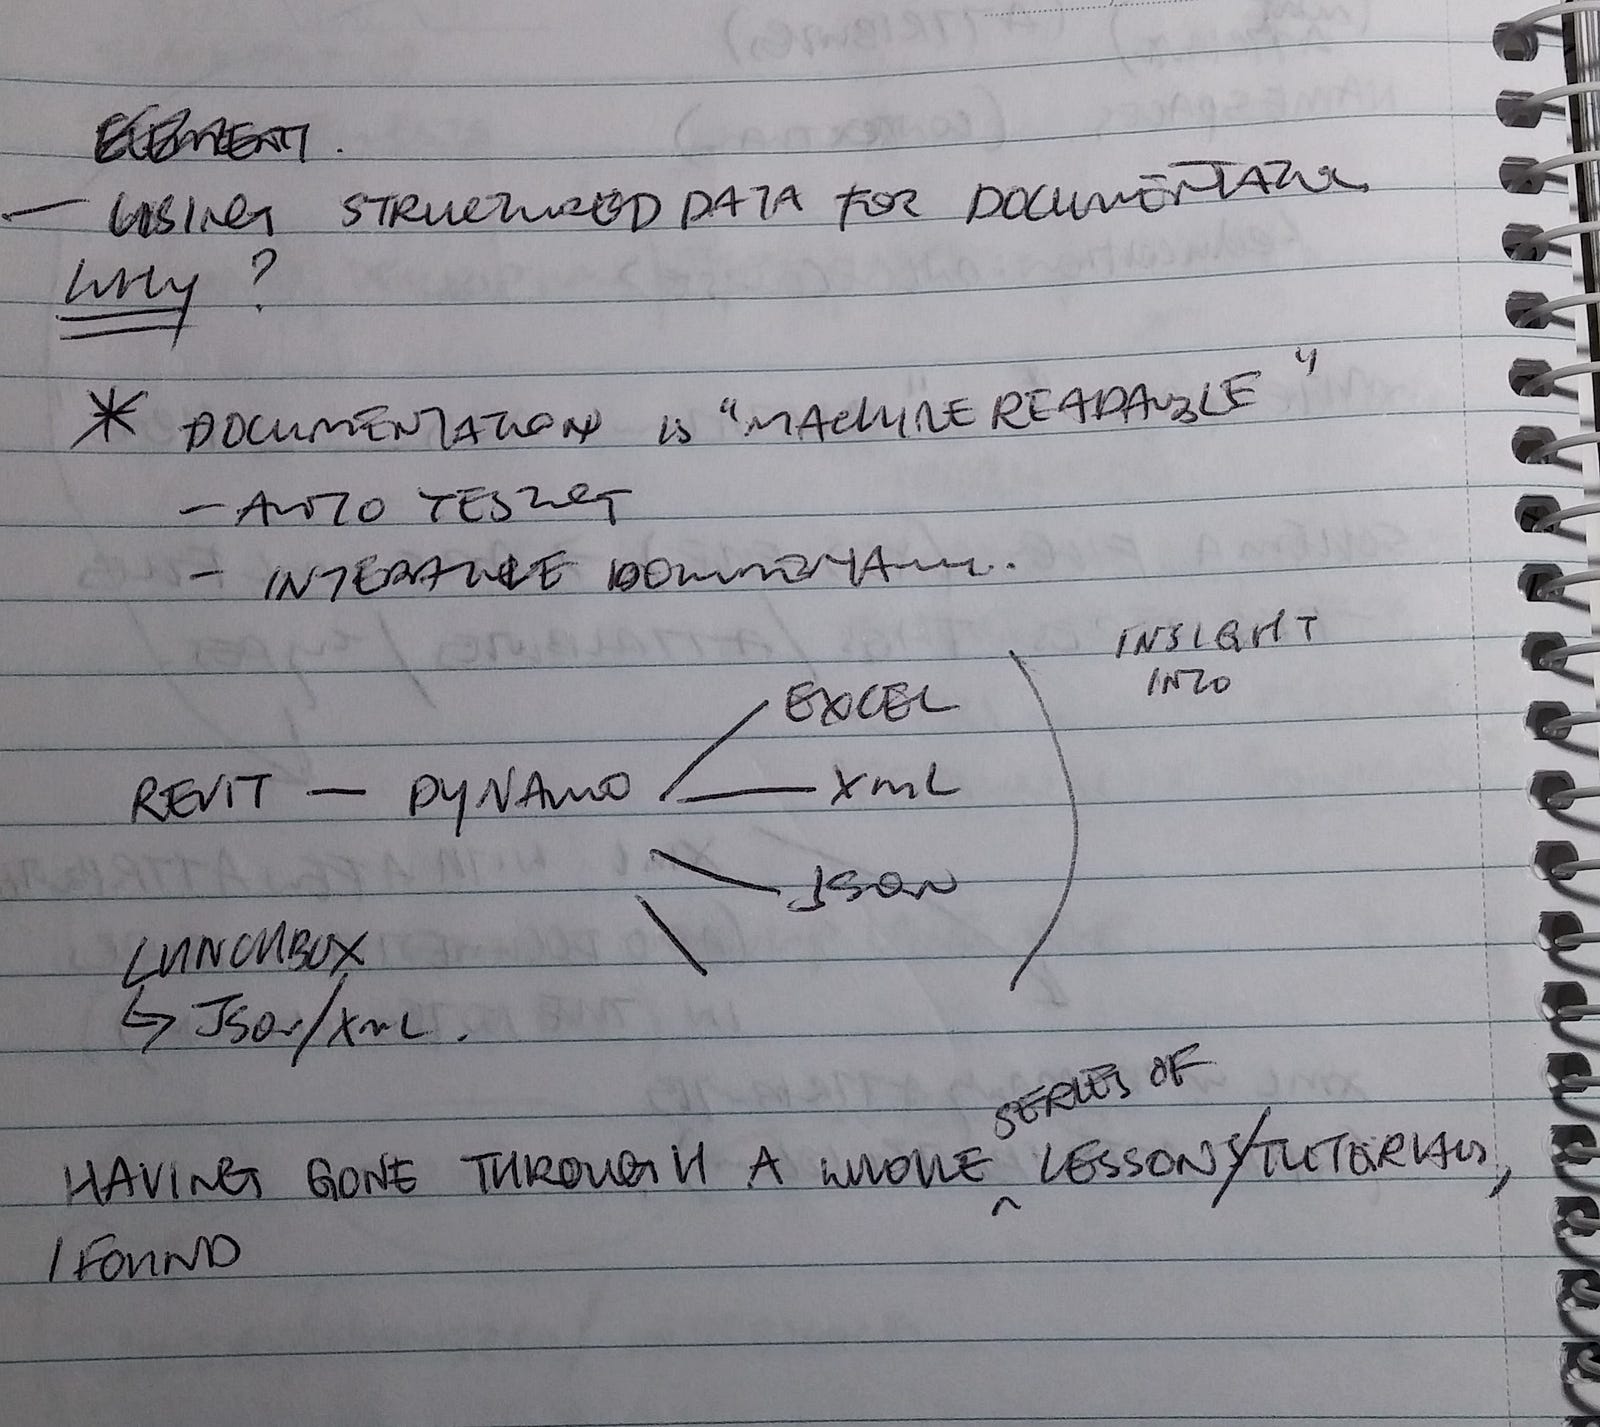 ELEMENT.
— USING STRUCTURED DATA FOR DOCUMENTATION
WHY ?
* DOCUMENTATION IS "MACHINE READABLE"
- AUTO TESTING
- DOCUMENTATION.
INSIGHT
INTO
EXCEL
REVIT — DYNAMO — XML
JSON
LUNCHBOX
↳ JSON/XML.
SERIES OF
HAVING GONE THROUGH A WHOLE ^ LESSONS/TUTORIALS,
I FOUND